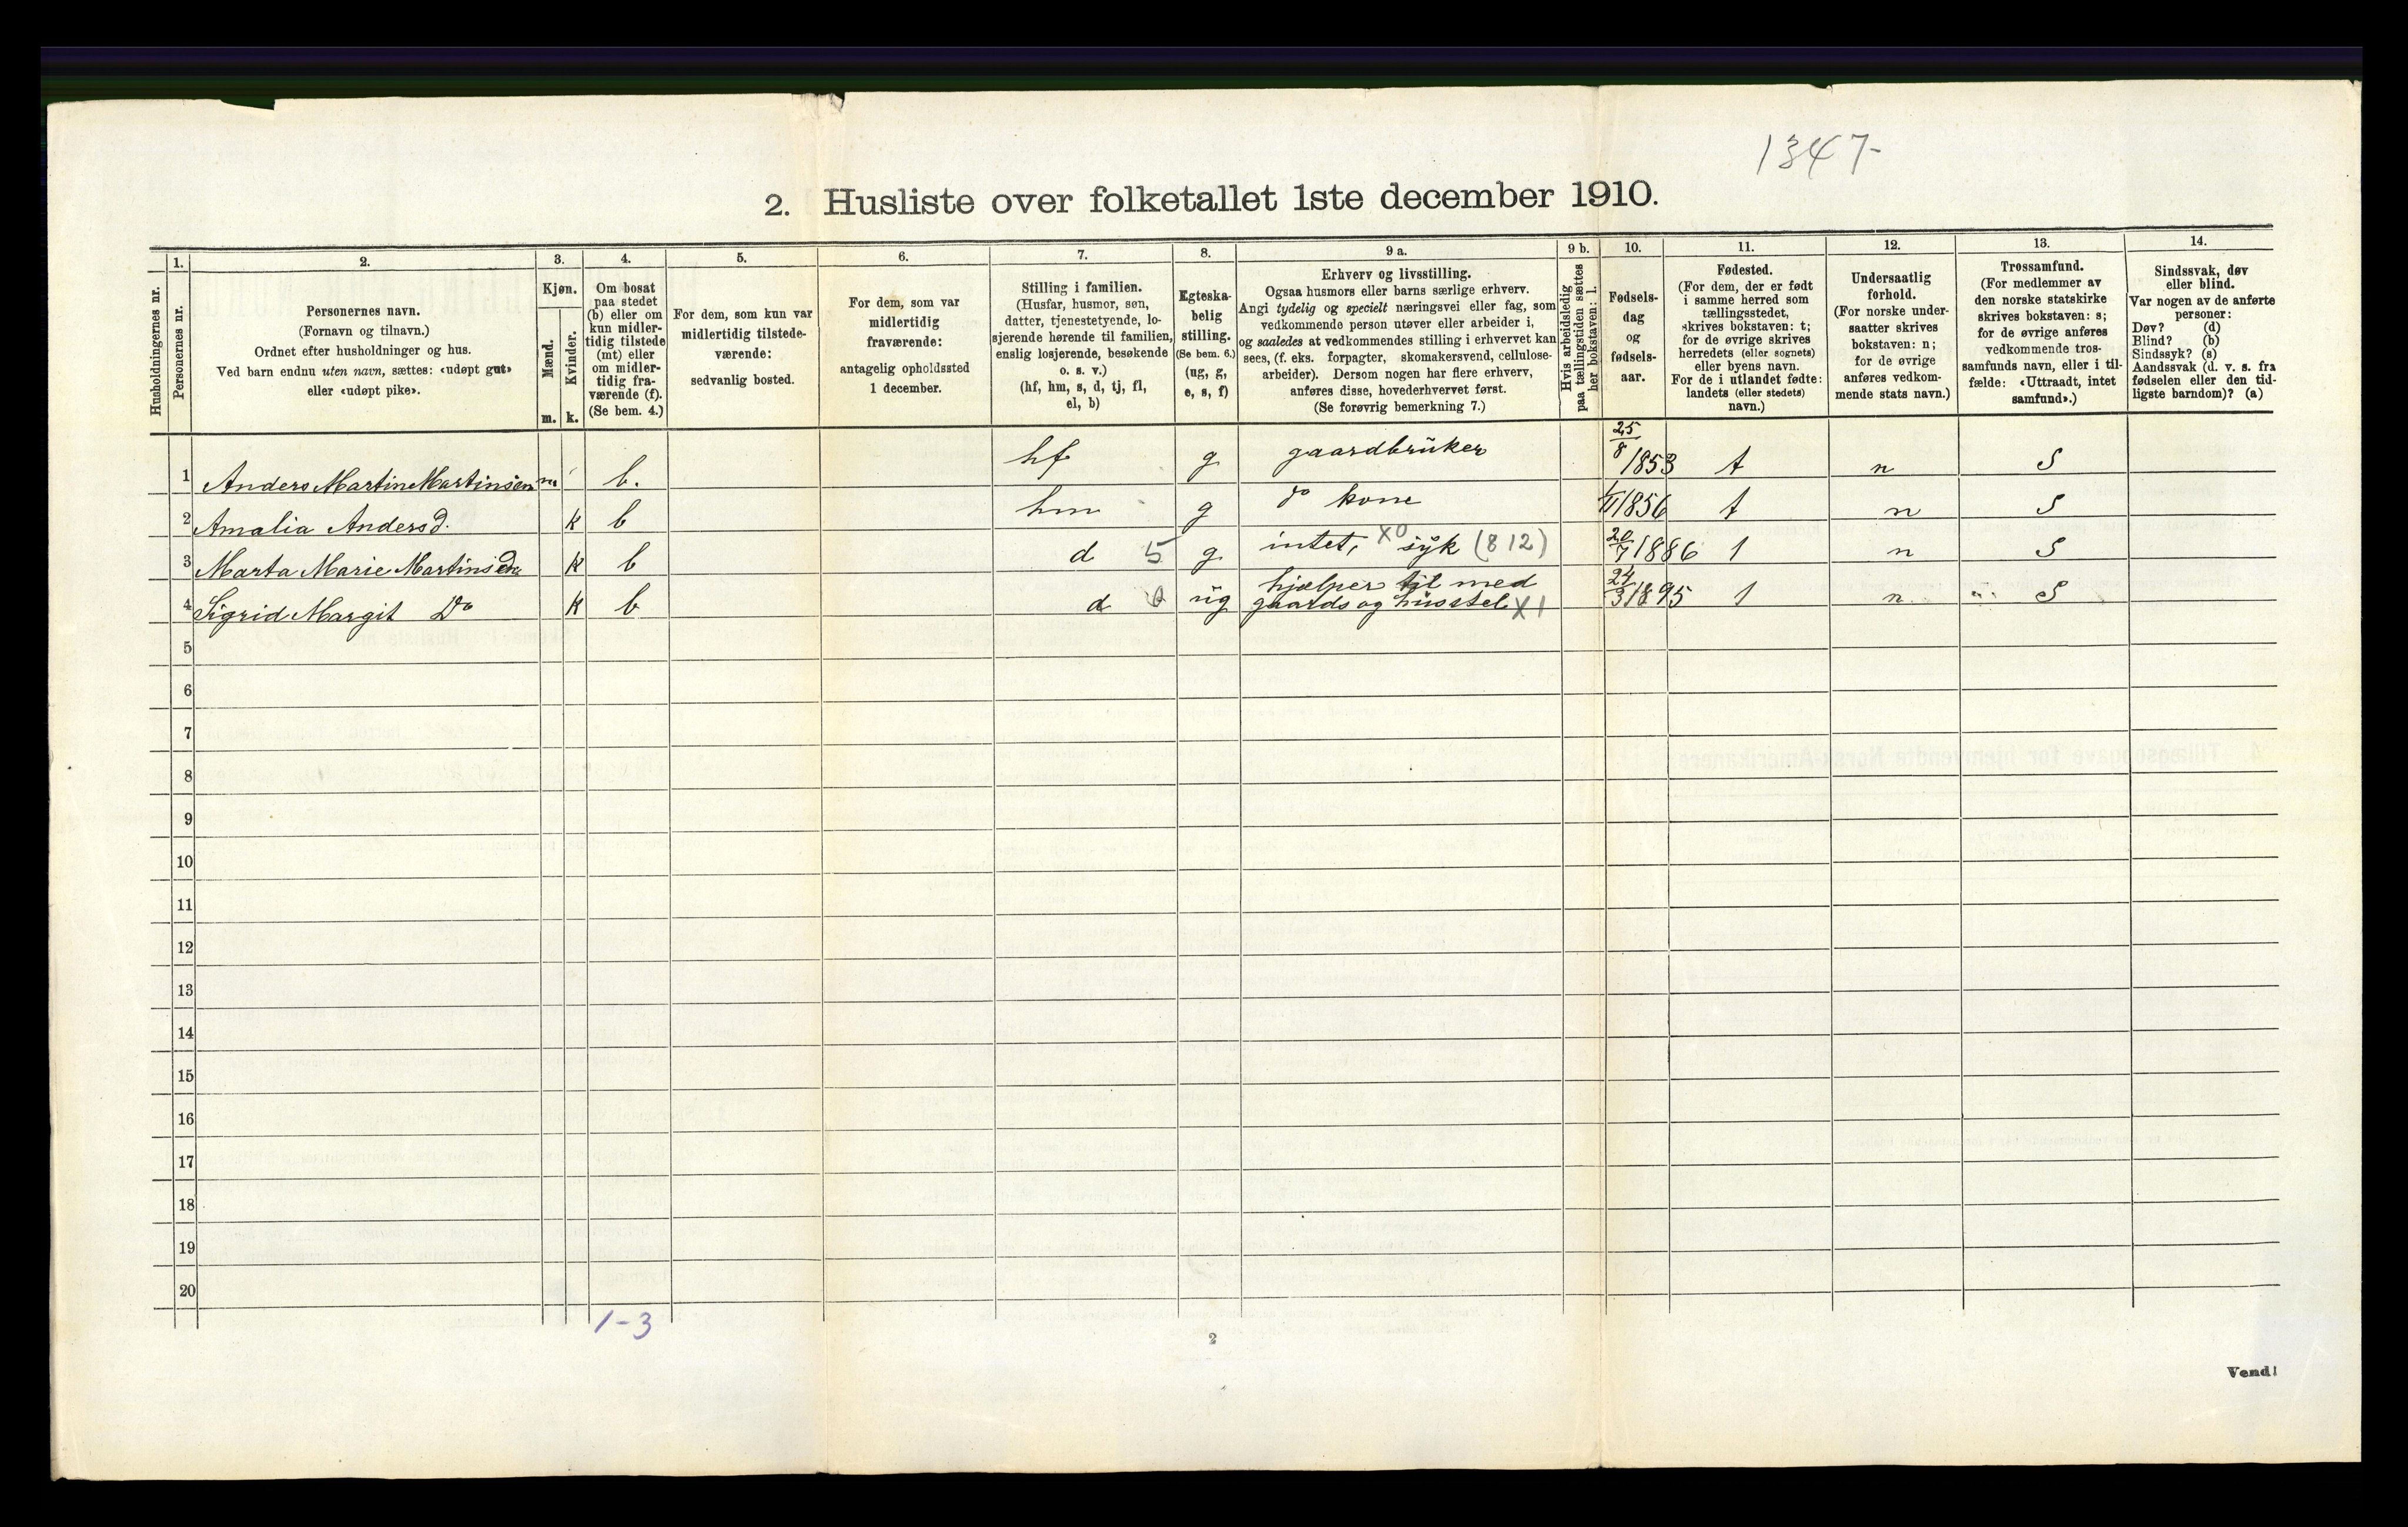 1347-
2. Husliste over folketallet 1ste december 1910.
Husholdningernes nr.
1.
Personernes nr.
2.
Personernes navn.
(Fornavn og tilnavn.)
Ordnet efter husholdninger og hus.
Ved barn endnu uten navn, sættes: «udøpt gut»
eller «udøpt pike».
3.
Kjøn.
Mænd.
m.
Kvinder.
k.
4.
Om bosat
paa stedet
(b) eller om
kun midler-
tidig tilstede
(mt) eller
om midler-
tidig fra-
værende (f).
(Se bem. 4.)
5.
For dem, som kun var
midlertidig tilstede-
værende:
sedvanlig bosted.
6.
For dem, som var
midlertidig
fraværende:
antagelig opholdssted
1 december.
7.
Stilling i familien.
(Husfar, husmor, søn,
datter, tjenestetyende, lo-
sjerende hørende til familien,
enslig losjerende, besøkende
o. s. v.)
(hf, hm, s, d, tj, fl,
el, b)
8.
Egteska-
belig
stilling.
(Se bem. 6.)
(ug, g,
e, s, f)
9 a.
Erhverv og livsstilling.
Ogsaa husmors eller barns særlige erhverv.
Angi tydelig og specielt næringsvei eller fag, som
vedkommende person utøver eller arbeider i,
og saaledes at vedkommendes stilling i erhvervet kan
sees, (f. eks. forpagter, skomakersvend, cellulose-
arbeider). Dersom nogen har flere erhverv,
anføres disse, hovederhvervet først.
(Se forøvrig bemerkning 7.)
9 b.
Hvis arbeidsledig
paa tællingstiden sættes
her bokstaven: l.
10.
Fødsels-
dag
og
fødsels-
aar.
11.
Fødested.
(For dem, der er født
i samme herred som
tællingsstedet,
skrives bokstaven: t;
for de øvrige skrives
herredets (eller sognets)
eller byens navn.
For de i utlandet fødte:
landets (eller stedets)
navn.)
12.
Undersaatlig
forhold.
(For norske under-
saatter skrives
bokstaven: n;
for de øvrige
anføres vedkom-
mende stats navn.)
13.
Trossamfund.
(For medlemmer av
den norske statskirke
skrives bokstaven: s;
for de øvrige anføres
vedkommende tros-
samfunds navn, eller i til-
fælde: «Uttraadt, intet
samfund».)
14.
Sindssvak, døv
eller blind.
Var nogen av de anførte
personer:
Døv? (d)
Blind? (b)
Sindssyk? (s)
Aandssvak (d. v. s. fra
fødselen eller den tid-
ligste barndom)? (a)
1 Anders Martin Martinsen m b. hf g gaardbruker 25/8 1853 t n S
2 Amalia Andersd. k b hm g do kone 1856 t n S
3 Marta Marie Martinsen k b d 5 g intet, X0 syk (812) 20/7 1886 1 n S
4 Sigrid Margit Do k b d ug hjælper til med
gaards og husstel X1 24/3 1895 1 n S
5
6
7
8
9
10
11
12
13
14
15
16
17
18
19
20
1-3
2
Vend!